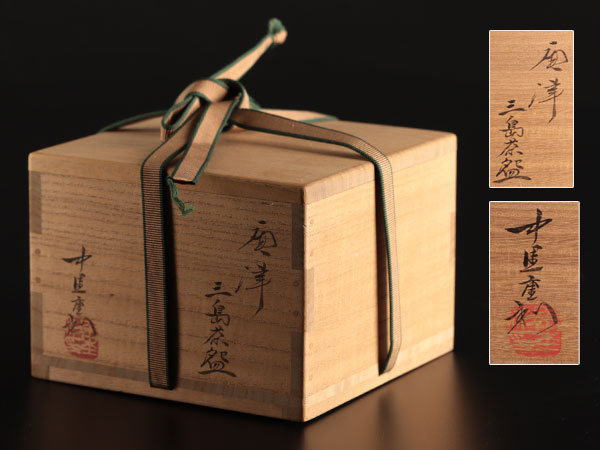 唐津
三島茶盌
中里重利
唐津
三島茶盌
中里重利